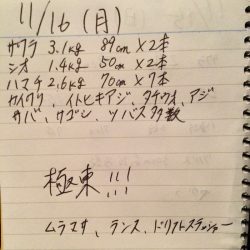 11/16 (月)
サワラ 3.1kg 89cm×2本
シオ 1.4kg 50cm×2本
ハマチ 2.6kg 70cm×7本
カイワリ、イトヒキアジ、タチウオ、アジ
サバ、ウグシ、ツバス多数
極東!!!
ムラマサ、ランス、ドリフトスラッシャー